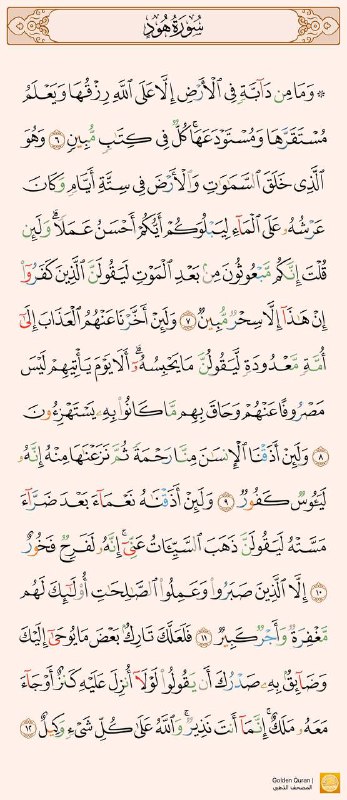 سُورَةُ هُودٍ
۞ وَمَا مِن دَآبَّةٍ فِي ٱلۡأَرۡضِ إِلَّا عَلَى ٱللَّهِ رِزۡقُهَا وَيَعۡلَمُ
مُسۡتَقَرَّهَا وَمُسۡتَوۡدَعَهَاۚ كُلّٞ فِي كِتَٰبٖ مُّبِينٖ ٦ وَهُوَ
ٱلَّذِي خَلَقَ ٱلسَّمَٰوَٰتِ وَٱلۡأَرۡضَ فِي سِتَّةِ أَيَّامٖ وَكَانَ
عَرۡشُهُۥ عَلَى ٱلۡمَآءِ لِيَبۡلُوَكُمۡ أَيُّكُمۡ أَحۡسَنُ عَمَلٗاۗ وَلَئِن
قُلۡتَ إِنَّكُم مَّبۡعُوثُونَ مِنۢ بَعۡدِ ٱلۡمَوۡتِ لَيَقُولَنَّ ٱلَّذِينَ كَفَرُوٓاْ
إِنۡ هَٰذَآ إِلَّا سِحۡرٞ مُّبِينٞ ٧ وَلَئِنۡ أَخَّرۡنَا عَنۡهُمُ ٱلۡعَذَابَ إِلَىٰٓ
أُمَّةٖ مَّعۡدُودَةٖ لَّيَقُولُنَّ مَا يَحۡبِسُهُۥٓۗ أَلَا يَوۡمَ يَأۡتِيهِمۡ لَيۡسَ
مَصۡرُوفًا عَنۡهُمۡ وَحَاقَ بِهِم مَّا كَانُواْ بِهِۦ يَسۡتَهۡزِءُونَ
٨ وَلَئِنۡ أَذَقۡنَا ٱلۡإِنسَٰنَ مِنَّا رَحۡمَةٗ ثُمَّ نَزَعۡنَٰهَا مِنۡهُ إِنَّهُۥ
لَيَـُٔوسٞ كَفُورٞ ٩ وَلَئِنۡ أَذَقۡنَٰهُ نَعۡمَآءَ بَعۡدَ ضَرَّآءَ
مَسَّتۡهُ لَيَقُولَنَّ ذَهَبَ ٱلسَّيِّـَٔاتُ عَنِّيٓۚ إِنَّهُۥ لَفَرِحٞ فَخُورٌ
١٠ إِلَّا ٱلَّذِينَ صَبَرُواْ وَعَمِلُواْ ٱلصَّٰلِحَٰتِ أُوْلَٰٓئِكَ لَهُم
مَّغۡفِرَةٞ وَأَجۡرٞ كَبِيرٞ ١١ فَلَعَلَّكَ تَارِكُۢ بَعۡضَ مَا يُوحَىٰٓ إِلَيۡكَ
وَضَآئِقُۢ بِهِۦ صَدۡرُكَ أَن يَقُولُواْ لَوۡلَآ أُنزِلَ عَلَيۡهِ كَنزٌ أَوۡ جَآءَ
مَعَهُۥ مَلَكٌۚ إِنَّمَآ أَنتَ نَذِيرٞۚ وَٱللَّهُ عَلَىٰ كُلِّ شَيۡءٖ وَكِيلٌ ١٢
Golden Quran |
المصحف الذهبي